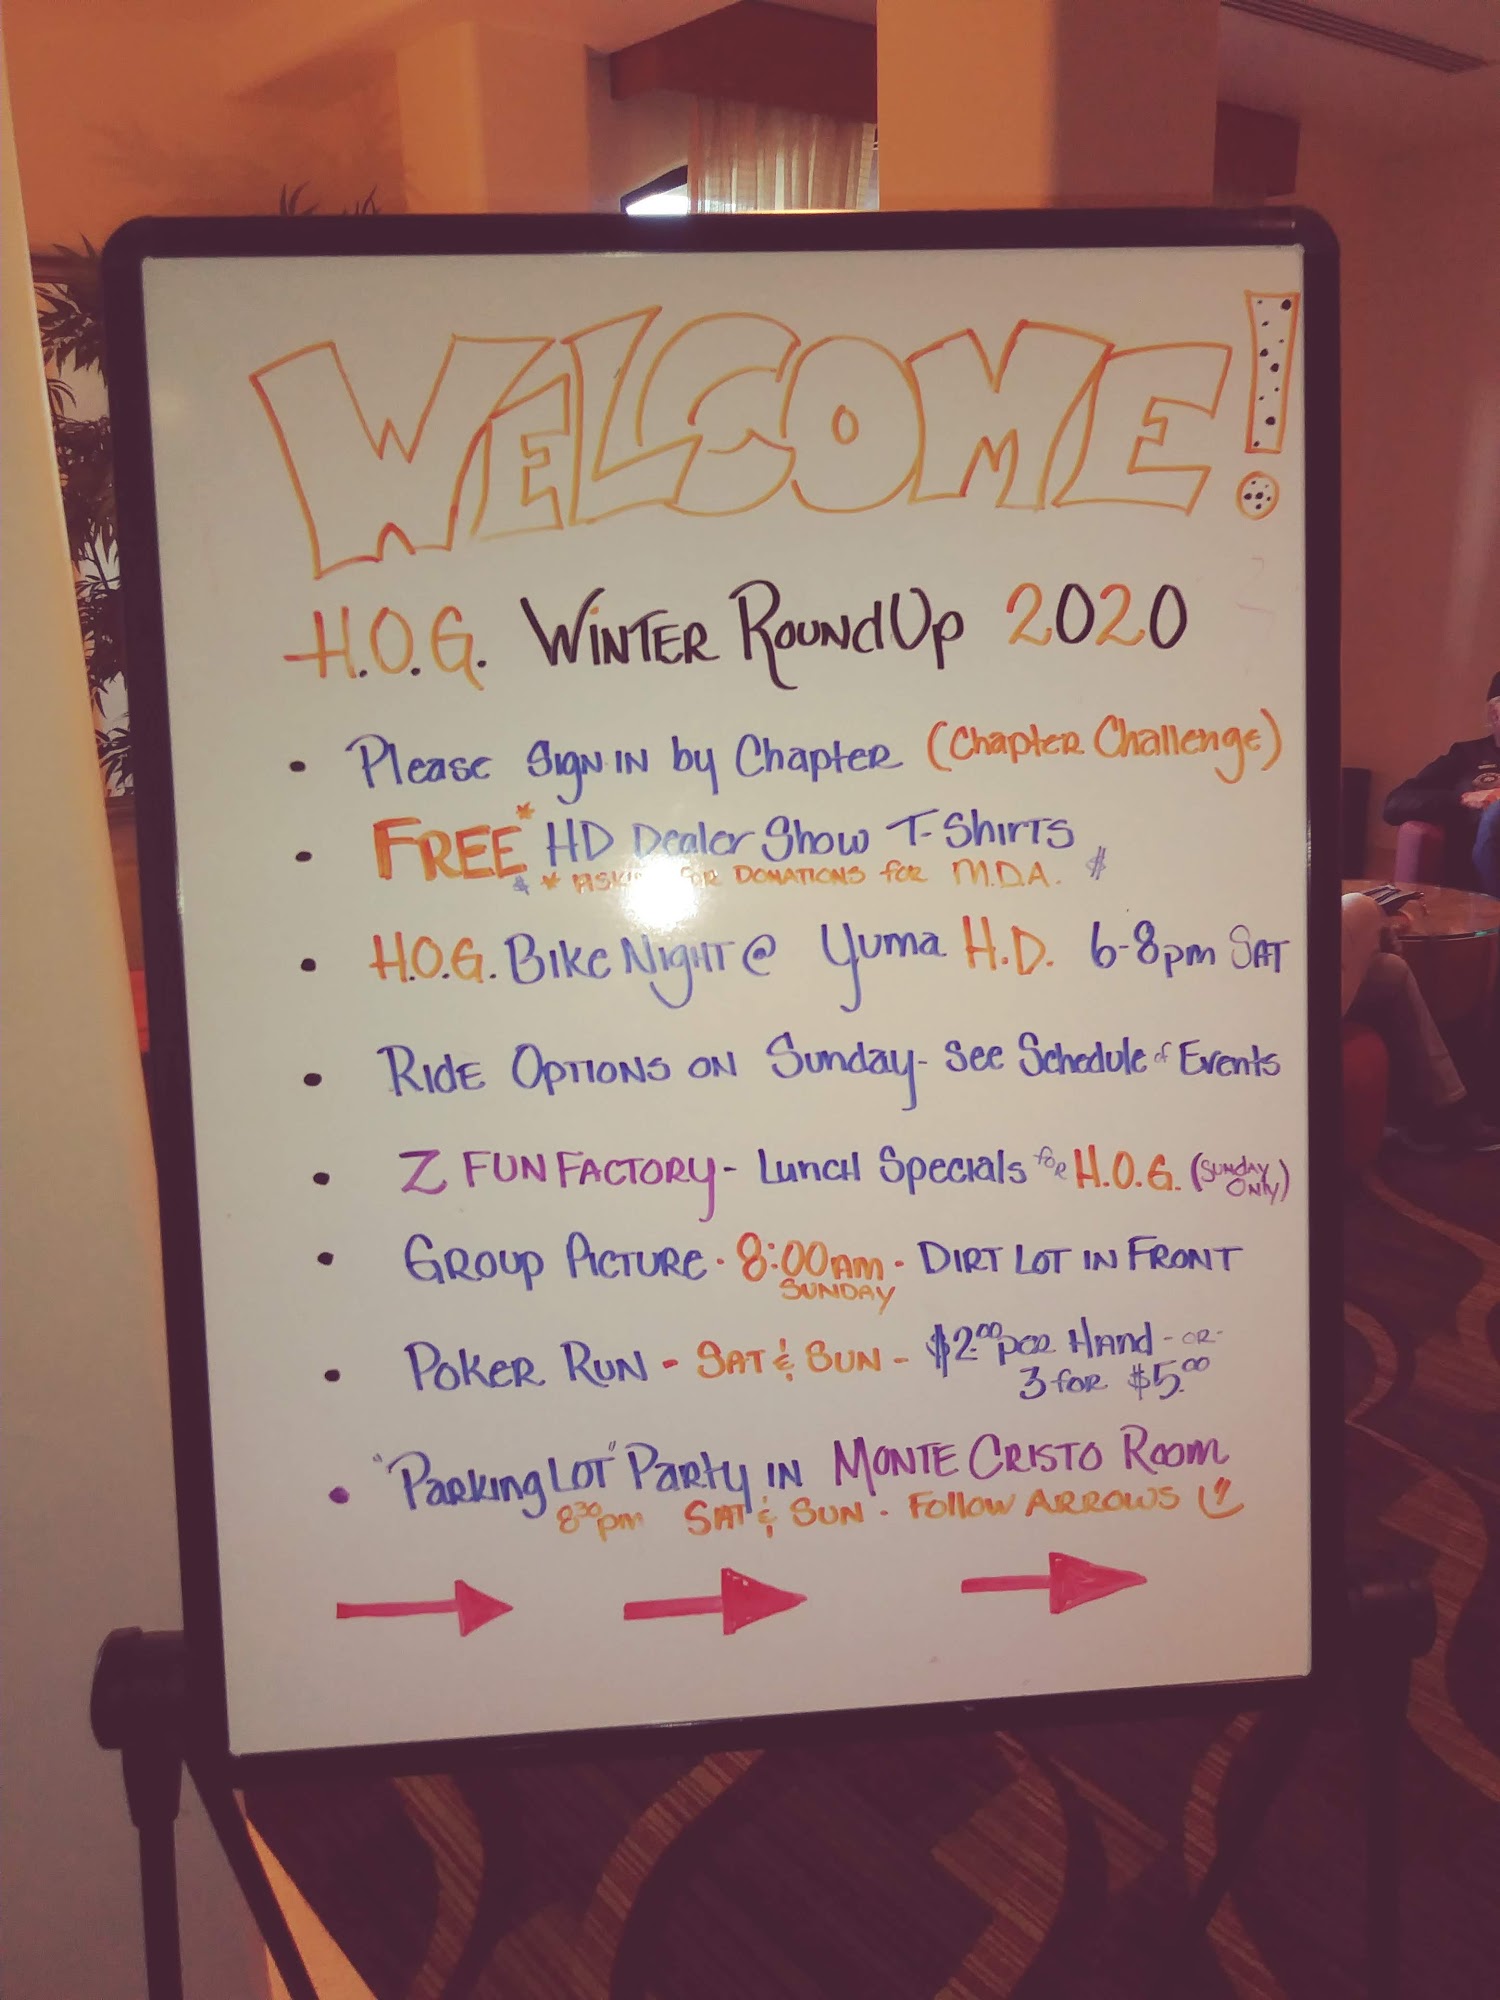 WELCOME!
H.O.G. WINTER ROUNDUP 2020
• Please Sign in by Chapter (Chapter Challenge)
• FREE* HD Dealer Show T-Shirts
$ * ASKING FOR DONATIONS for M.D.A. $
• H.O.G. Bike Night @ Yuma H.D. 6-8pm SAT
• Ride Options on Sunday - See Schedule of Events
• Z FUN FACTORY - Lunch Specials for H.O.G. (SUNDAY ONLY)
• GROUP PICTURE - 8:00AM - DIRT LOT IN FRONT
SUNDAY
• POKER RUN - SAT & SUN - $2.00 per Hand - OR -
3 for $5.00
• "Parking LOT" Party in MONTE CRISTO ROOM
8:30pm SAT & SUN - Follow ARROWS